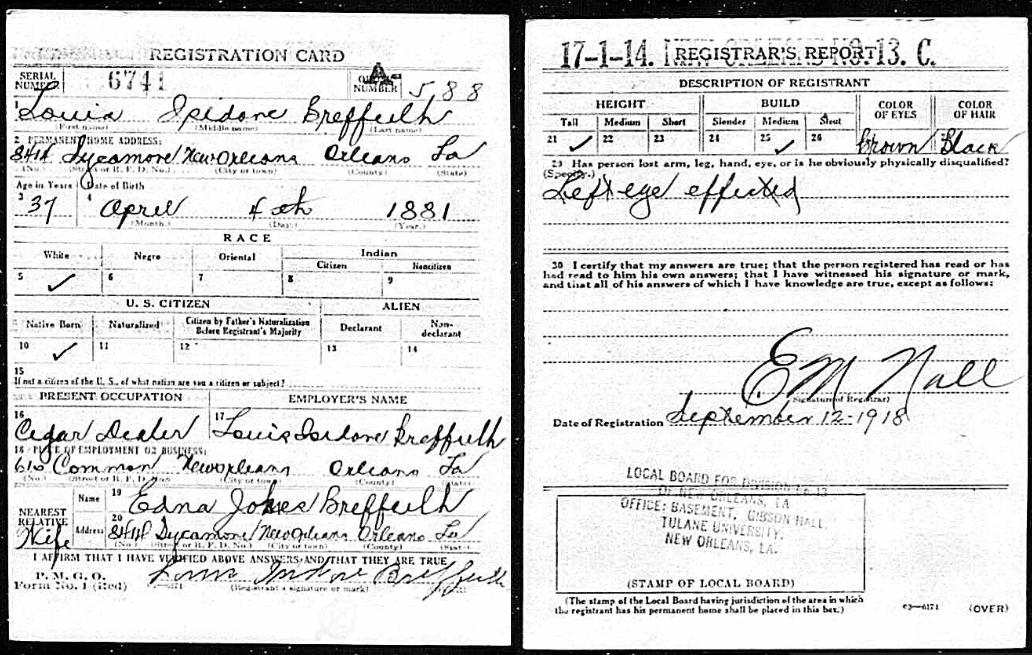 REGISTRATION CARD
SERIAL NUMBER 6741 ORDER NUMBER A-588
1 Louis Isidore Breffeilh
(First name) (Middle name) (Last name)
2 PERMANENT HOME ADDRESS:
8414 Sycamore New Orleans Orleans La
(No.) (Street or R. F. D. No.) (City or town) (County) (State)
Age in Years Date of Birth
3 37 4 April 4th 1881
(Month.) (Day.) (Year.)
RACE
White Negro Oriental Indian
Citizen Noncitizen
5 ✓ 6 7 8 9
U. S. CITIZEN ALIEN
Native Born Naturalized Citizen by Father's Naturalization Before Registrant's Majority Declarant Non-declarant
10 ✓ 11 12 13 14
15
If not a citizen of the U. S., of what nation are you a citizen or subject?
PRESENT OCCUPATION EMPLOYER'S NAME
16 Cigar Dealer 17 Louis Isidore Breffeilh
18 PLACE OF EMPLOYMENT OR BUSINESS:
615 Common New Orleans Orleans La
(No.) (Street or R. F. D. No.) (City or town) (County) (State)
NEAREST RELATIVE Name 19 Edna Jones Breffeilh
Wife Address 20 8414 Sycamore New Orleans Orleans La
(No.) (Street or R. F. D. No.) (City or town) (County) (State)
I AFFIRM THAT I HAVE VERIFIED ABOVE ANSWERS AND THAT THEY ARE TRUE
P. M. G. O.
Form No. 1 (Red) Louis Isidore Breffeilh
(Registrant's signature or mark)
17-1-14. NO. 13. C.
REGISTRAR'S REPORT
DESCRIPTION OF REGISTRANT
HEIGHT BUILD COLOR OF EYES COLOR OF HAIR
Tall Medium Short Slender Medium Stout
21 ✓ 22 23 24 25 ✓ 26 Brown Black
29 Has person lost arm, leg, hand, eye, or is he obviously physically disqualified?
(Specify.)
Left eye effected
30 I certify that my answers are true; that the person registered has read or has
had read to him his own answers; that I have witnessed his signature or mark,
and that all of his answers of which I have knowledge are true, except as follows:
E M Nall
(Signature of Registrar)
Date of Registration September 12-1918
LOCAL BOARD FOR DIVISION No 13
OF NEW ORLEANS, LA
OFFICE: BASEMENT, GIBSON HALL,
TULANE UNIVERSITY.
NEW ORLEANS, LA.
(STAMP OF LOCAL BOARD)
(The stamp of the Local Board having jurisdiction of the area in which
the registrant has his permanent home shall be placed in this box.)
03—6171 (OVER)